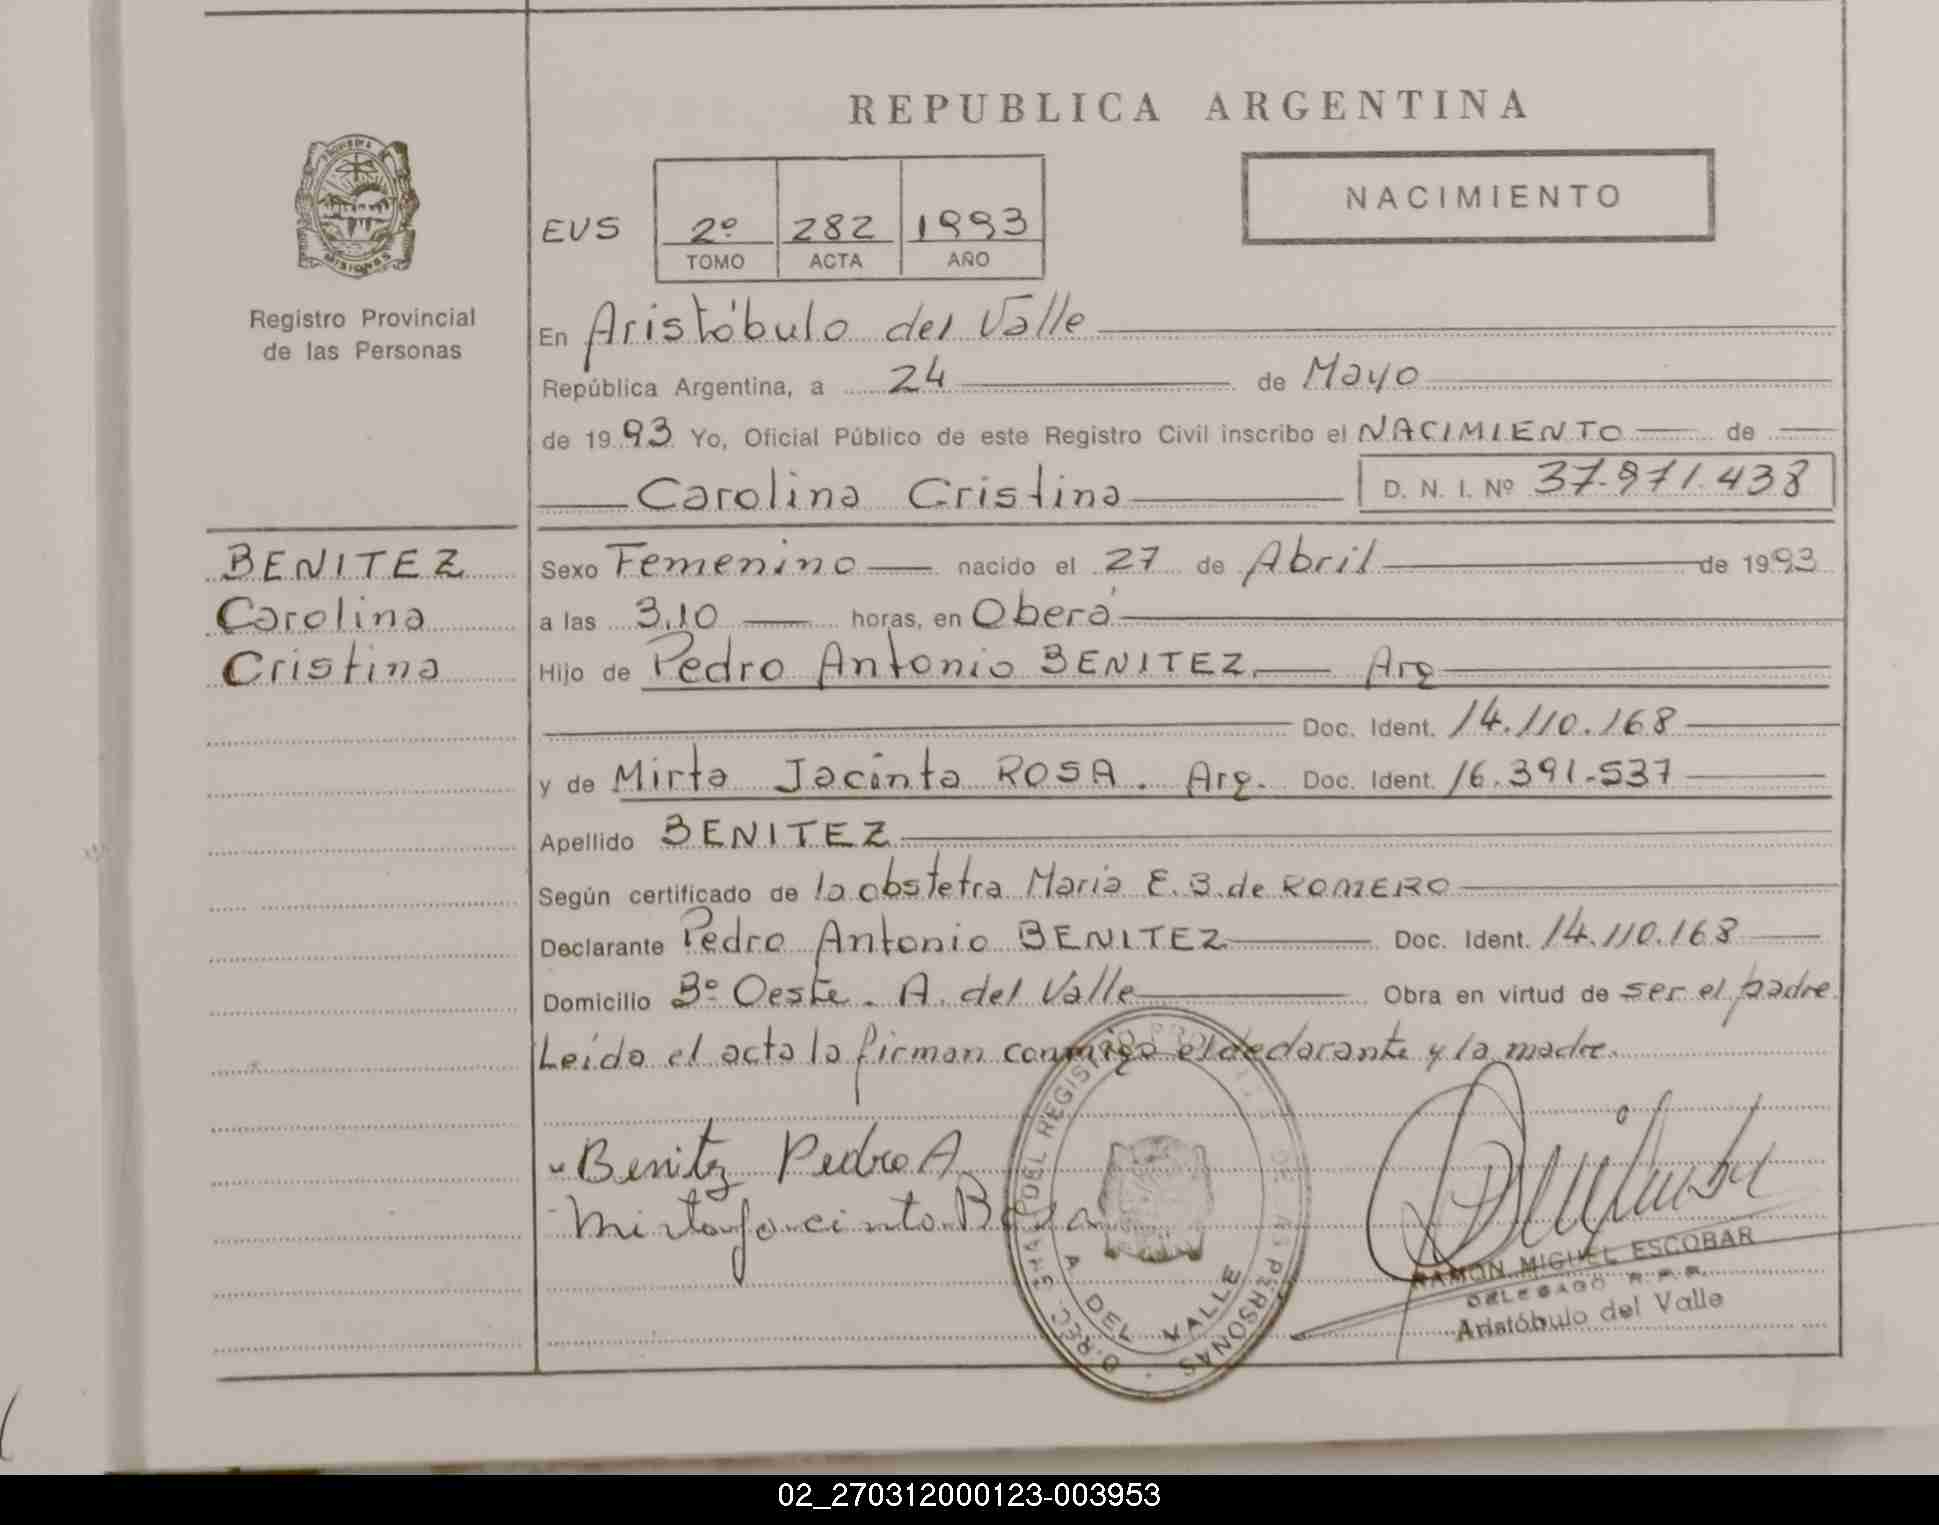 REPUBLICA ARGENTINA
NACIMIENTO
EUS 2º 282 1993
TOMO ACTA AÑO
PROVINCIA DE
MISIONES
Registro Provincial
de las Personas
En Aristóbulo del Valle
República Argentina, a 24 de Mayo
de 1993 Yo, Oficial Público de este Registro Civil inscribo el NACIMIENTO de
Carolina Cristina D. N. I. Nº 37.971.438
BENITEZ
Carolina
Cristina
Sexo Femenino nacido el 27 de Abril de 1993
a las 3,10 horas, en Oberá
Hijo de Pedro Antonio BENITEZ. Arg
Doc. Ident. 14.110.168
y de Mirta Jacinta ROSA. Arg. Doc. Ident. 16.391.537
Apellido BENITEZ
Según certificado de la obstetra Maria E. B. de ROMERO
Declarante Pedro Antonio BENITEZ Doc. Ident. 14.110.168
Domicilio Bº Oeste. A. del Valle Obra en virtud de ser el padre
Leída el acta la firman conmigo el declarante y la madre.
Benitz Pedro A
Mirta Jacinto
DEL REGISTRO PROVINCIAL DE LAS PERSONAS
A. DEL VALLE
RAMON MIGUEL ESCOBAR
DELEGADO R.P.P.
Aristóbulo del Valle
02_270312000123-003953